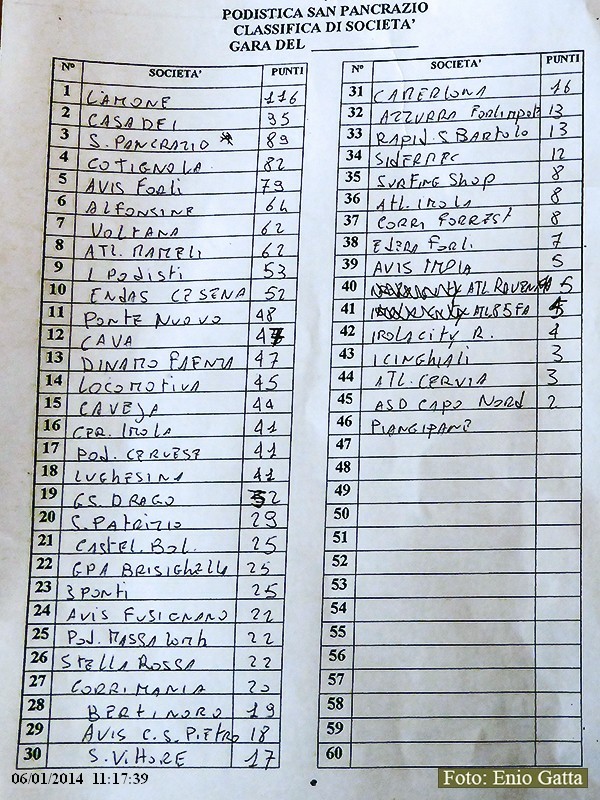 PODISTICA SAN PANCRAZIO
CLASSIFICA DI SOCIETA'
GARA DEL
N° SOCIETA' PUNTI
1 LAMONE 116
2 CASADEI 95
3 S. PANCRAZIO 89
4 COTIGNOLA 82
5 AVIS FORLI 79
6 ALFONSINE 64
7 VOLTANA 62
8 ATL. MAMELI 62
9 I PODISTI 53
10 ENDAS CESENA 52
11 PONTE NUOVO 48
12 CAVA 47
13 DINAMO FAENZA 47
14 LOCOMOTIVA 45
15 CAVEJA 44
16 CER. IMOLA 41
17 POD. CERVESE 41
18 LUGHESINA 41
19 GS. DRAGO 32
20 S. PATRIZIO 29
21 CASTEL. BOL. 25
22 GPA BRISIGHELLA 25
23 3 PONTI 25
24 AVIS FUSIGNANO 22
25 POD. MASSA LOMB 22
26 STELLA ROSSA 22
27 CORRIMANIA 20
28 BERTINORO 19
29 AVIS C.S. PIETRO 18
30 S. VITTORE 17
N° SOCIETA' PUNTI
31 CAMERLONA 16
32 AZZURRA FORLIMPOP 13
33 RAPID. S. BARTOLO 13
34 SIDERMEC 12
35 SURFING SHOP 8
36 ATL. IMOLA 8
37 CORRI FORREST 8
38 EDERA FORLI 7
39 AVIS IMOLA 5
40 ATL RAVENNA 5
41 ATL 85 FA
42 IMOLA CITY R. 4
43 I CINGHIALI 3
44 ATL. CERVIA 3
45 ASD CAPO NORD 2
46 PIANGIPANE
47
48
49
50
51
52
53
54
55
56
57
58
59
60
06/01/2014 11:17:39
Foto: Enio Gatta